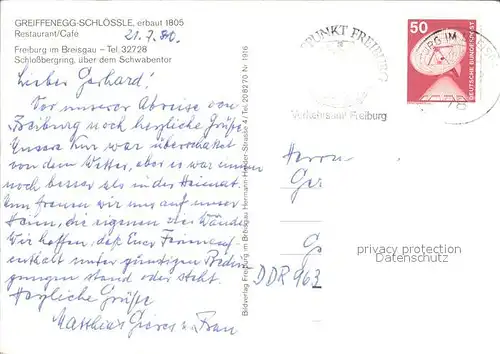 GREIFFENEGG-SCHLÖSSLE, erbaut 1805
Restaurant/Café
21.7.80.
Freiburg im Breisgau – Tel. 32728
Schloßbergring, über dem Schwabentor
Lieber Gerhard!
Vor unserer Abreise von
Freiburg noch herzliche Grüße.
Unsere Kur war überschattet
von dem Wetter, aber es war immer
noch besser als in der Heimat.
Nun freuen wir uns auf unser
Heim, die eigenen vier Wände.
Wir hoffen, daß Euer
enthalt unter günstigen Bedin
gungen stand oder steht.
Herzliche Grüße
Matthias u. Frau
Bildverlag Freiburg im Breisgau Hermann-Herder-Strasse 4 / Tel. 20 8270 Nr. 1916
PUNKT FREIBURG
Verkehrsamt Freiburg
50
DEUTSCHE BUNDESPOST
BURG IM
78
Herrn
Ger
G
DDR 963
privacy protection
Datenschutz